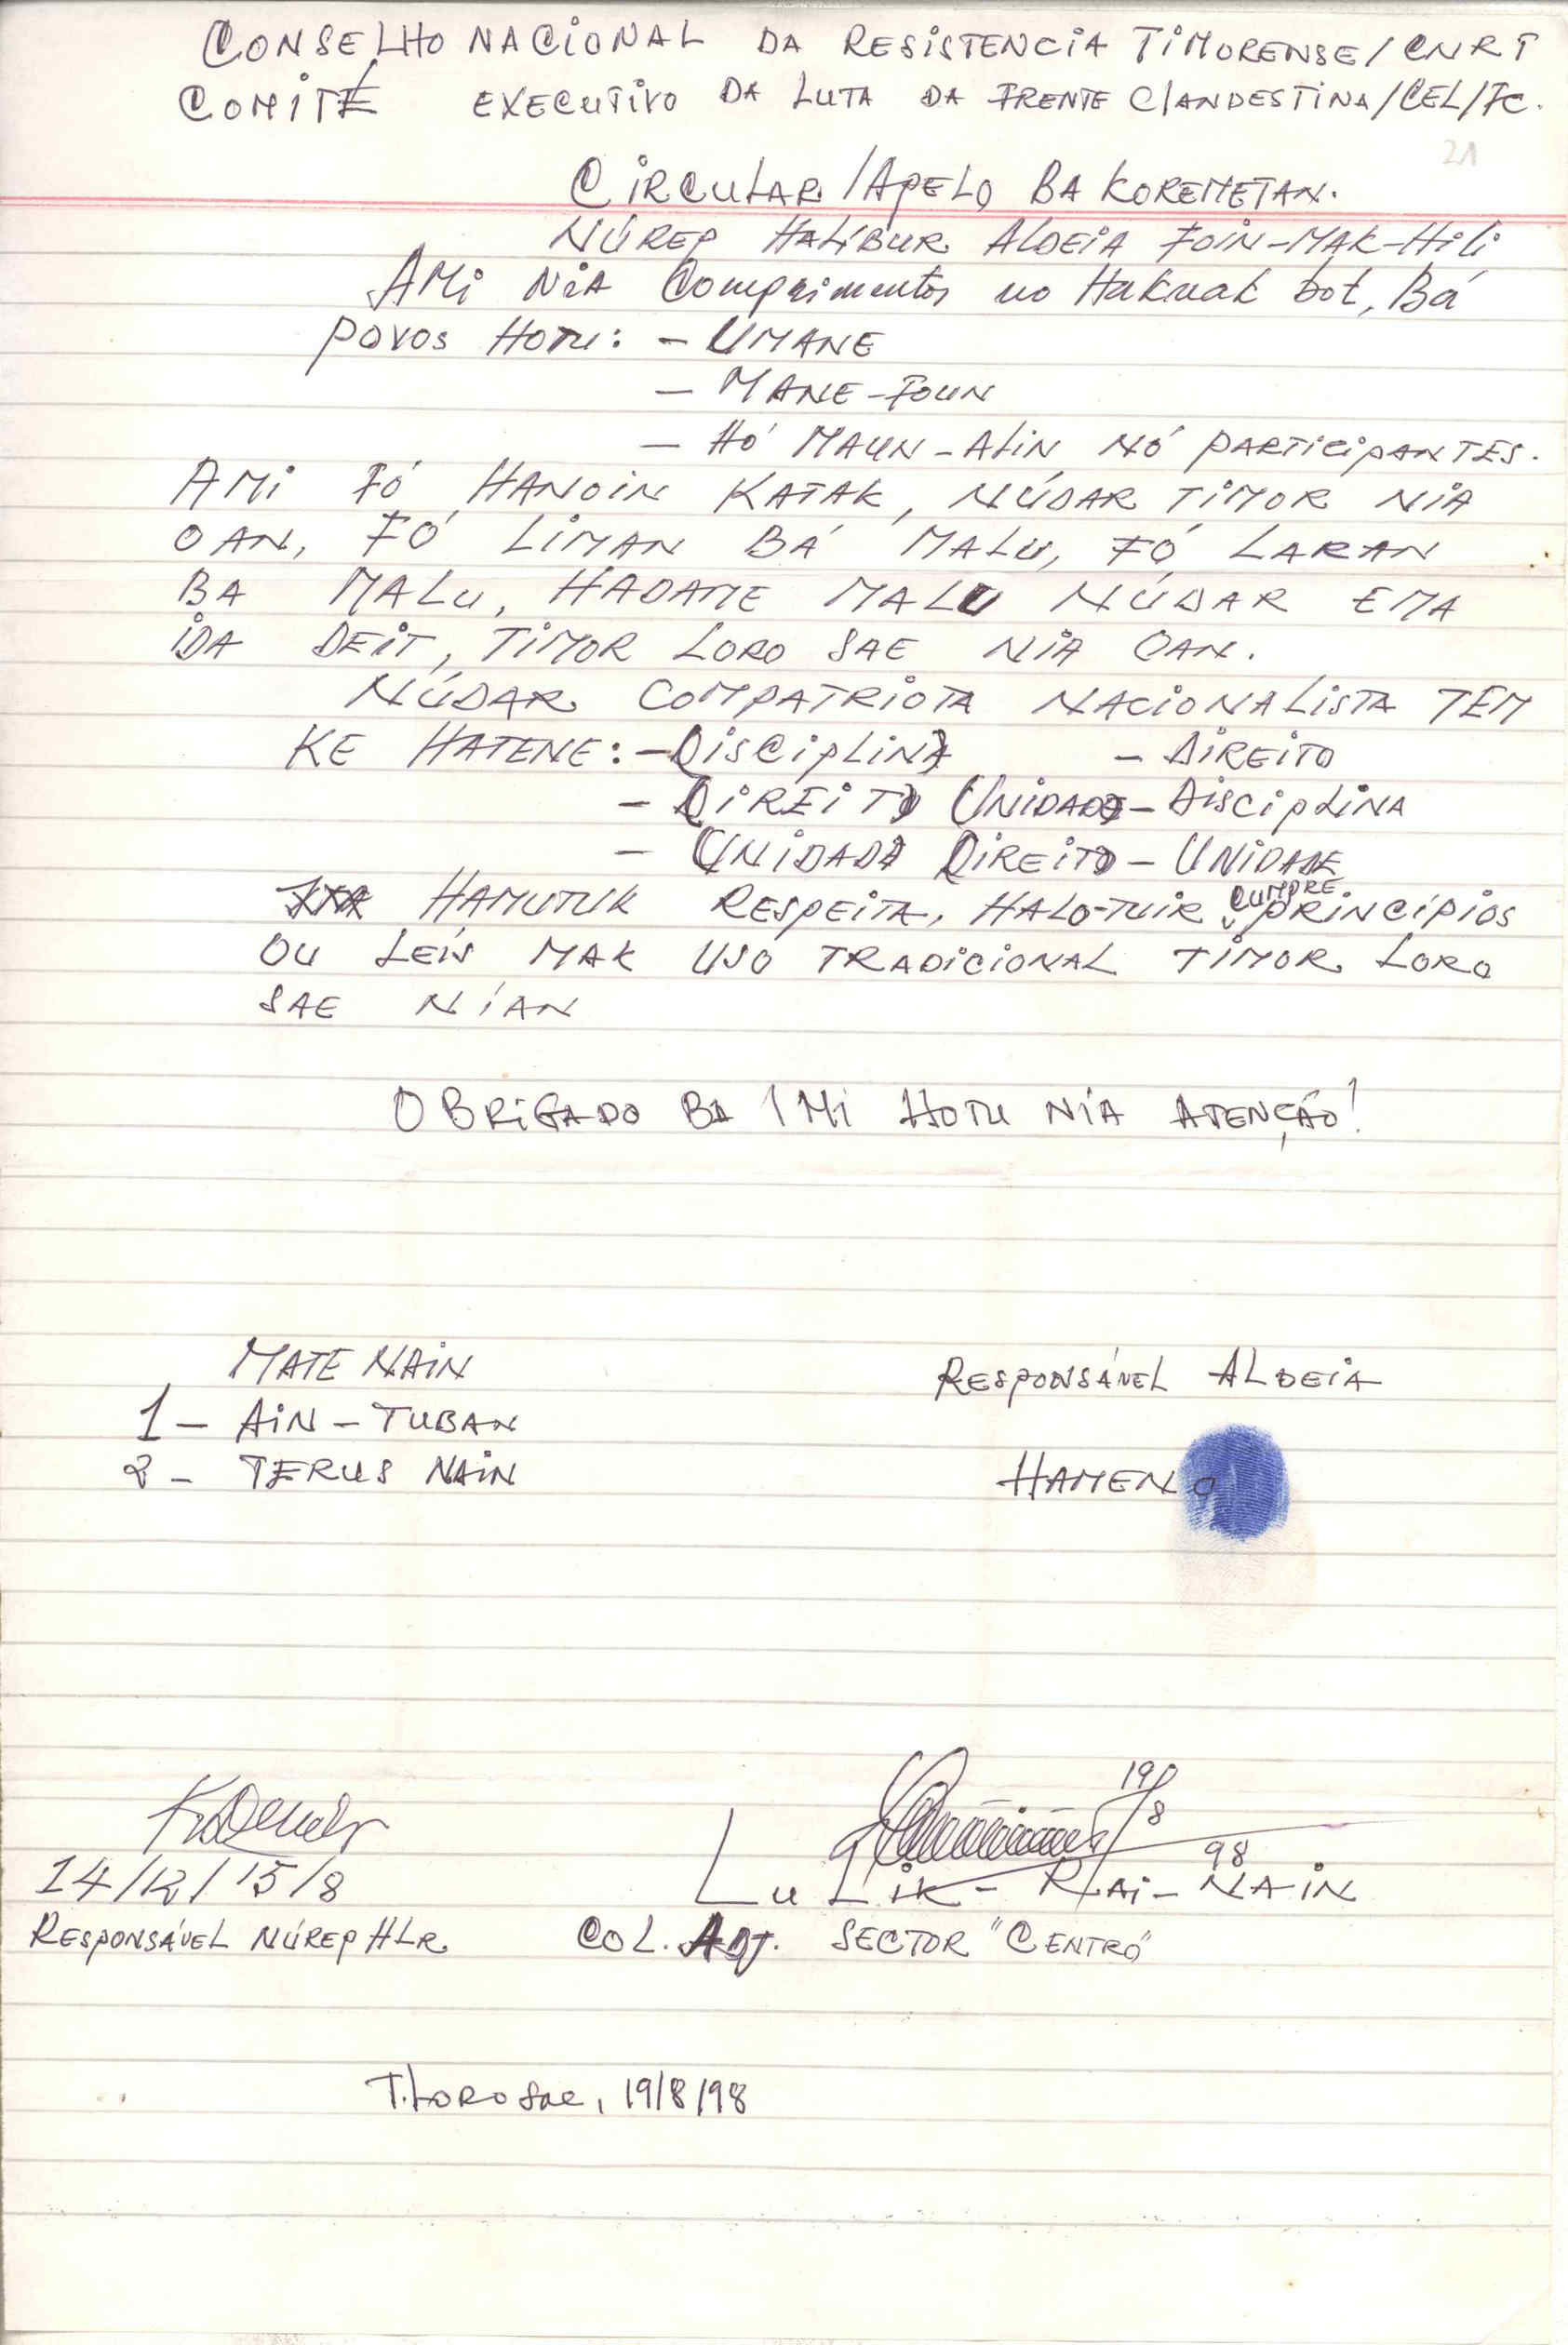 CONSELHO NACIONAL DA RESISTENCIA TIMORENSE/CNRT
COMITÉ EXECUTIVO DA LUTA DA FRENTE CLANDESTINA/CEL/FC.
21
CIRCULAR/APELO BA KOREMETAN.
NÚREP HALIBUR ALDEIA FOIN-MAK-HILI
AMI NIA Comprimentos no Hakuak bot, Bá
POVOS HOTU: - UMANE
- MANE-FOUN
- HÓ MAUN-ALIN NÓ PARTICIPANTES.
AMI FÓ HANOIN KATAK, NÚDAR TIMOR NIA
OAN, FÓ LIMAN BÁ MALU, FÓ LARAN
BA MALU, HADAME MALU NÚDAR EMA
IDA DEIT, TIMOR LORO SAE NIA OAN.
NÚDAR COMPATRIOTA NACIONALISTA TEM
KE HATENE: - DISCIPLINA - DIREITO
- DIREITO UNIDADE - DISCIPLINA
- UNIDADE DIREITO - UNIDADE
HAMUTUK RESPEITA, HALO-TUIR CUMPRE PRINCÍPIOS
OU LEIS MAK USO TRADICIONAL TIMOR LORO
SAE NIAN
OBRIGADO BA IMI HOTU NIA ATENÇÃO!
MATE NAIN
1 - AIN-TUBAN
2 - TERUS NAIN
RESPONSÁVEL ALDEIA
HAMENO
19/8
98
14/12/15/8
LULIK-RAI-NAIN
RESPONSÁVEL NÚREP HLR
COL. ADJ. SECTOR "CENTRO"
T. Loro Sae, 19/8/98